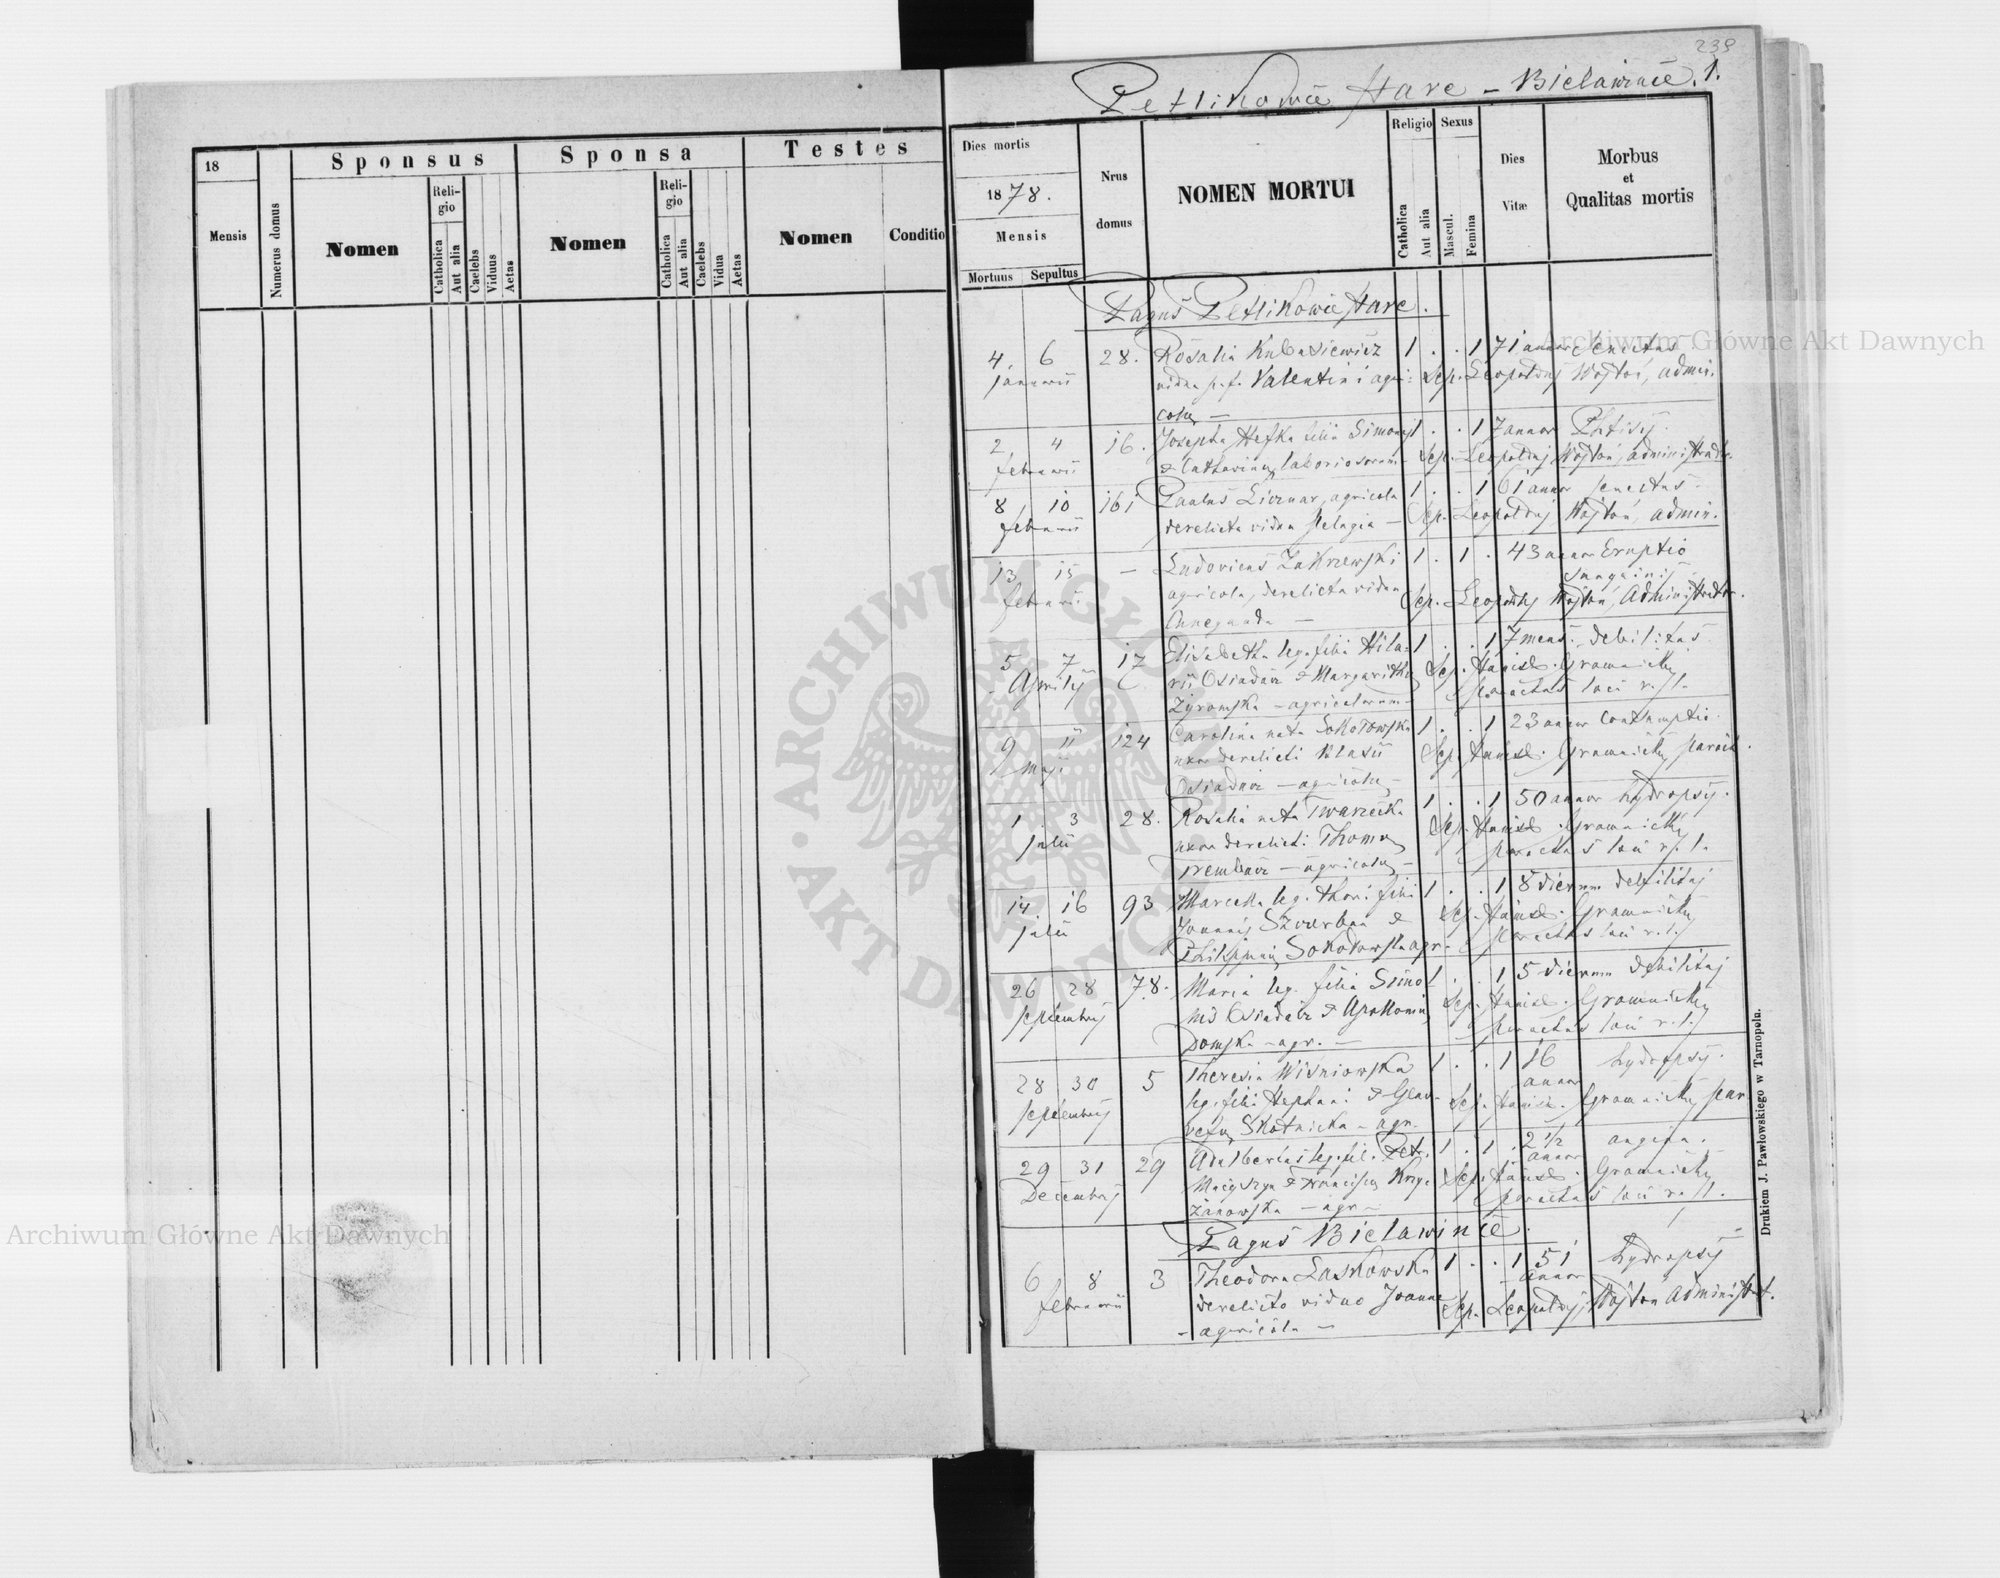 239
Petlikowce Stare - Bielawince. 1.
18
Mensis
Numerus domus
Sponsus
Nomen
Religio
Catholica
Aut alia
Caelebs
Viduus
Aetas
Sponsa
Nomen
Religio
Catholica
Aut alia
Caelebs
Vidua
Aetas
Testes
Nomen
Conditio
Dies mortis
1878.
Mensis
Mortuus Sepultus
Nrus domus
NOMEN MORTUI
Religio
Catholica
Aut alia
Sexus
Mascul.
Femina
Dies Vitæ
Morbus et Qualitas mortis
Pagus Petlikowce Stare.
4 6 28. Rosalia Kubasiewicz 1 . . 1 71 annor senectus
januarii vidua p. f. Valentini agri- Sep. Leopoldus Wojton, admin.
colæ —
2 4 16. Josepha Hefka filia Simonis 1 . . 1 7 annor Phtisis.
februarii & Catharinæ laboriosorum Sep. Leopoldus Wojton, administrator.
8 10 161 Paulus Licznar, agricola 1 . . 1 61 annor senectus
februarii derelicta vidua Pelagia — Sep. Leopoldus Wojton, admin.
13 15 — Ludovicus Zakrzewski 1 . 1 . 43 annor Eruptio
sanguinis
februarii agricola, derelicta vidua Sep. Leopoldus Wojton, Administrator.
5 7 17 Elisabetha leg. filia Hila- 1 . . 1 7 mens. debilitas
Aprilis rii Osiadacz & Margarithæ Sep. Stanisl. Gromnicki
Żyromska — agricolarum — parochus loci r. l.
9 11 124 Carolina nata Sokołowska 1 . . 1 23 annor Consumptio
maji uxor derelicti Blasii Sep. Stanisl. Gromnicki paroch.
Osiadacz — agricolæ —
1 3 28. Rosalia nata Twarzecka 1 . . 1 50 annor hydropsis.
julii uxor derelicti Thomæ Sep. Stanisl. Gromnicki
Trembacz — agricolæ — parochus loci r. l.
14 16 93 Marcella leg. thori filia 1 . . 1 8 dierum debilitas
julii Joannis Szczerban & Sep. Stanisl. Gromnicki
Philippinæ Sokołowska agr. parochus loci r. l.
26 28 78. Maria leg. filia Simo- 1 . . 1 5 dierum debilitas
septembris nis Osiadacz & Apolloniæ Sep. Stanisl. Gromnicki
Domska — agr. — parochus loci r. l.
28 30 5 Theresia Wiśniowska 1 . . 1 16 annor hydropsis.
septembris leg. filia Stephani & Sep. Stanisl. Gromnicki par.
Skotnicka — agr.
29 31 29 Adalbertus leg. fil. Petri 1 . 1 . 2 1/2 annor angina.
Decembris & Franciscæ Sep. Stanisl. Gromnicki
— agr — parochus loci r. l.
Pagus Bielawince.
6 8 3 Theodora Laskowska 1 . . 1 51 annor hydropsis
februarii derelicto viduo Joanne Sep. Leopoldus Wojton Administrat.
— agricola —
Drukiem J. Pawłowskiego w Tarnopolu.
Archiwum Główne Akt Dawnych
Archiwum Główne Akt Dawnych
ARCHIWUM GŁÓWNE AKT DAWNYCH